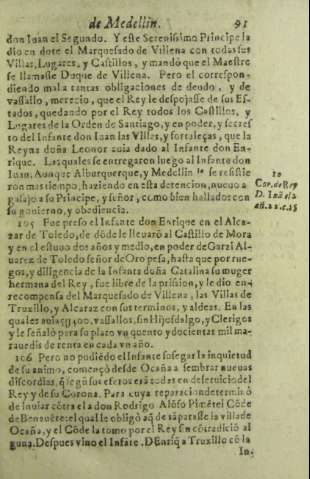 de Medellin. 91
don Iuan el Segundo. Y este Serenissimo Principe la
dio en dote el Marquesado de Villena con todas sus
Villas, Lugares, y Castillos, y mandó que el Maestre
se llamasse Duque de Villena. Pero el correspon-
diendo mal a tantas obligaciones de deudo, y de
vassallo, merecio, que el Rey le despojasse de sus Es-
tados, quedando por el Rey todos los Castillos, y
Lugares de la Orden de Santiago, y en poder, y secres
to del Infante don Iuan las Villas, y fortaleças, que la
Reyna doña Leonor auia dado al Infante don En-
rique. Las quales se entregaron luego al Infante don
Iuan. Aunque Alburquerque, y Medellin 10 se resistie
ron mas tiempo, haziendo en esta detencion, nueuo a
gasajo a su Principe, y señor, como bien hallados con
su gouierno, y obediencia.
10
Cor. de Rey
D. Iuã el 2.
105 Fue preso el Infante don Enrique en el Alca-
zar de Toledo, de dõde le lleuarõ al Castillo de Mora
y en el estuuo dos años y medio, en poder de Garzi Al-
uarez de Toledo señor de Oropesa, hasta que por rue-
gos, y diligencia de la Infanta doña Catalina su muger
hermana del Rey, fue libre de la prision, y le dio en-
recompensa del Marquesado de Villena, las Villas de
Truxillo, y Alcaraz con sus terminos, y aldeas. En las
quales auia vassallos, sin Hijosdalgo, y Clerigos
y le señaló para su plato vn quento y docientas mil ma-
rauedis de renta en cada vn año.
106 Pero no podiẽdo el Infante sosegar la inquietud
de su animo, començò desde Ocaña a sembrar nueuas
discordias, q̃ segũ sus efetos erã todas en deseruicio del
Rey y de su Corona. Para cuya reparacion determinó
de inuiar cõtra el a don Rodrigo Alõso Pimẽtel Cõde
de Benauẽte: el qual le obligò aq̃ de sãparasse la villa de
Ocaña, y el Cõde la tomo por el Rey sin cõtradiciõ al
guna. Despues vino el Infãte, D. Enriq̃ a Truxillo cõ la
In-